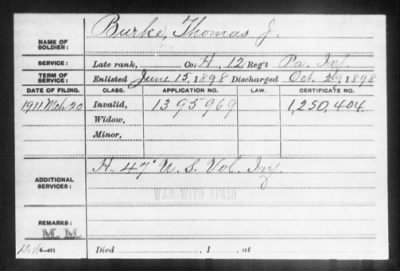 NAME OF SOLDIER: Burke, Thomas J.
SERVICE: Late rank, Co. H, 12 Reg't Pa. Inf.
TERM OF SERVICE: Enlisted June 15, 1898 Discharged Oct. 29, 1898
DATE OF FILING. CLASS. APPLICATION NO. LAW. CERTIFICATE NO.
1911 Mch 20 Invalid, 1395969 1,250,404
Widow,
Minor,
ADDITIONAL SERVICES: H 47" U.S. Vol. Inf.
WAR WITH SPAIN
REMARKS:
M.M.
Died , 1 , at